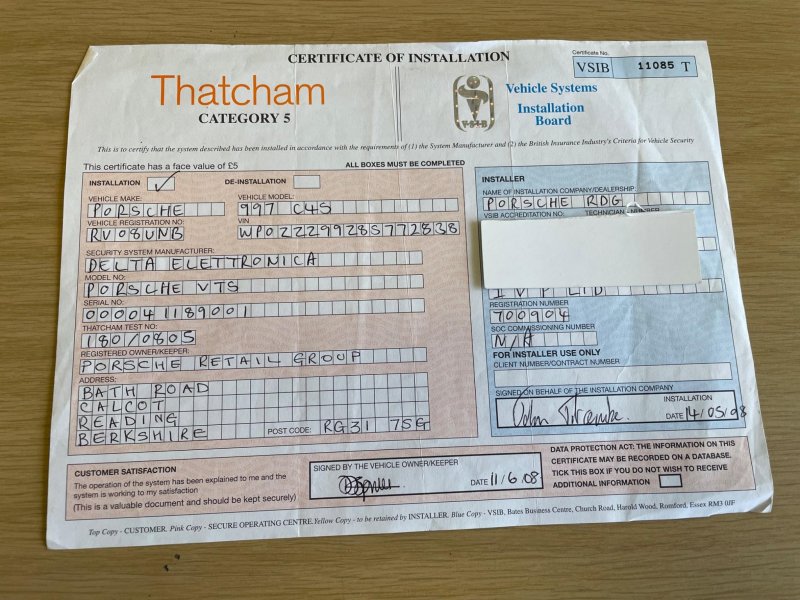 CERTIFICATE OF INSTALLATION
Certificate No.
VSIB 11085 T
Thatcham
CATEGORY 5
V·S·I·B
Vehicle Systems
Installation
Board
This is to certify that the system described has been installed in accordance with the requirements of (1) the System Manufacturer and (2) the British Insurance Industry's Criteria for Vehicle Security
This certificate has a face value of £5
ALL BOXES MUST BE COMPLETED
INSTALLATION ✓ DE-INSTALLATION
VEHICLE MAKE: VEHICLE MODEL:
PORSCHE 997 C4S
VEHICLE REGISTRATION NO: VIN
RV08UNB WP0ZZZ99Z8S772838
SECURITY SYSTEM MANUFACTURER:
DELTA ELETTRONICA
MODEL NO:
PORSCHE VTS
SERIAL NO:
000041189001
THATCHAM TEST NO:
180/0805
REGISTERED OWNER/KEEPER:
PORSCHE RETAIL GROUP
ADDRESS:
BATH ROAD
CALCOT
READING
BERKSHIRE POST CODE: RG31 7SG
INSTALLER
NAME OF INSTALLATION COMPANY/DEALERSHIP:
PORSCHE RDG
VSIB ACCREDITATION NO: TECHNICIAN NUMBER
IVP LTD
REGISTRATION NUMBER
700904
SOC COMMISSIONING NUMBER
N/A
FOR INSTALLER USE ONLY
CLIENT NUMBER/CONTRACT NUMBER
SIGNED ON BEHALF OF THE INSTALLATION COMPANY
INSTALLATION
DATE 14/05/08
CUSTOMER SATISFACTION
The operation of the system has been explained to me and the
system is working to my satisfaction
(This is a valuable document and should be kept securely)
SIGNED BY THE VEHICLE OWNER/KEEPER
DATE 11/6/08
DATA PROTECTION ACT: THE INFORMATION ON THIS
CERTIFICATE MAY BE RECORDED ON A DATABASE.
TICK THIS BOX IF YOU DO NOT WISH TO RECEIVE
ADDITIONAL INFORMATION
Top Copy - CUSTOMER. Pink Copy - SECURE OPERATING CENTRE. Yellow Copy - to be retained by INSTALLER. Blue Copy - VSIB, Bates Business Centre, Church Road, Harold Wood, Romford, Essex RM3 0JF